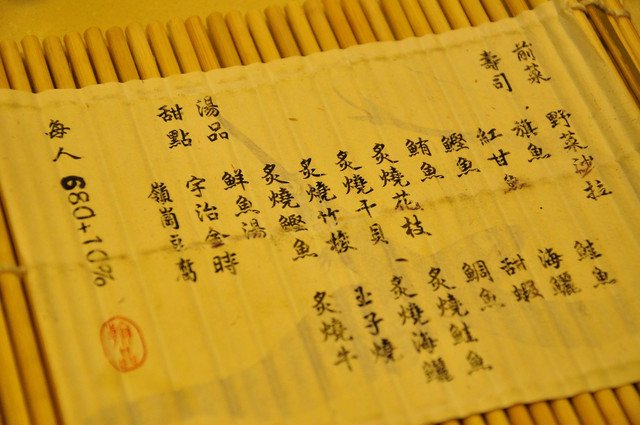 前菜 野菜沙拉
壽司 ·旗魚 鮭魚
紅甘魚 海鱺
鰹魚 甜蝦
鮪魚 鯛魚
炙燒花枝 炙燒鮭魚
炙燒干貝、炙燒海鱺
炙燒竹梭 玉子燒
炙燒鰹魚 炙燒牛
湯品 鮮魚湯
甜點 宇治金時
嶺崗豆腐
每人 680+10%